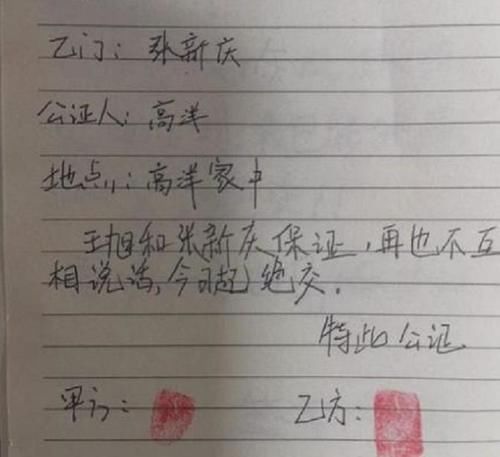 乙门：张新庆
公证人：高洋
地点：高洋家中
王旭和张新庆保证，再也不互
相说话，今日起绝交．
特此公证
甲方：
乙方：